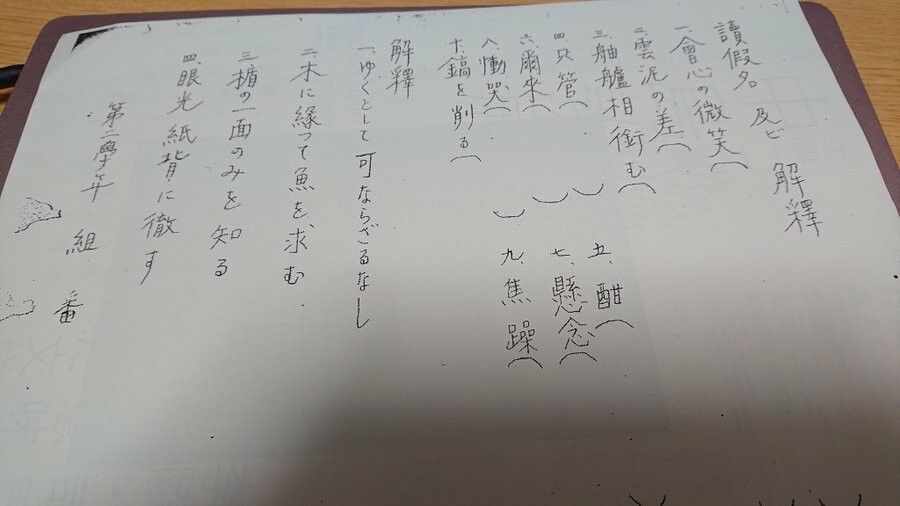 讀假名 及ビ 解釋
一、會心の微笑（
二、雲泥の差（
三、舳艫相銜む（
四、只管（ ）
五、酣（
六、爾来（ ）
七、懸念（
八、慟哭（ ）
九、焦躁（
十、鎬を削る（
解釋
一、ゆくとして可ならざるなし
二、木に緣って魚を求む
三、楯の一面のみを知る
四、眼光紙背に徹す
第二學年 組 番